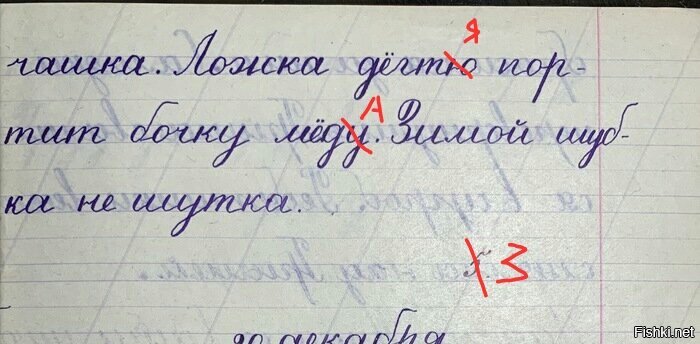 чашка. Ложка дёгтю пор-
Я
тит бочку мёду. Зимой шуб-
А
ка не шутка.
5 3
20 декабря
Fishki.net